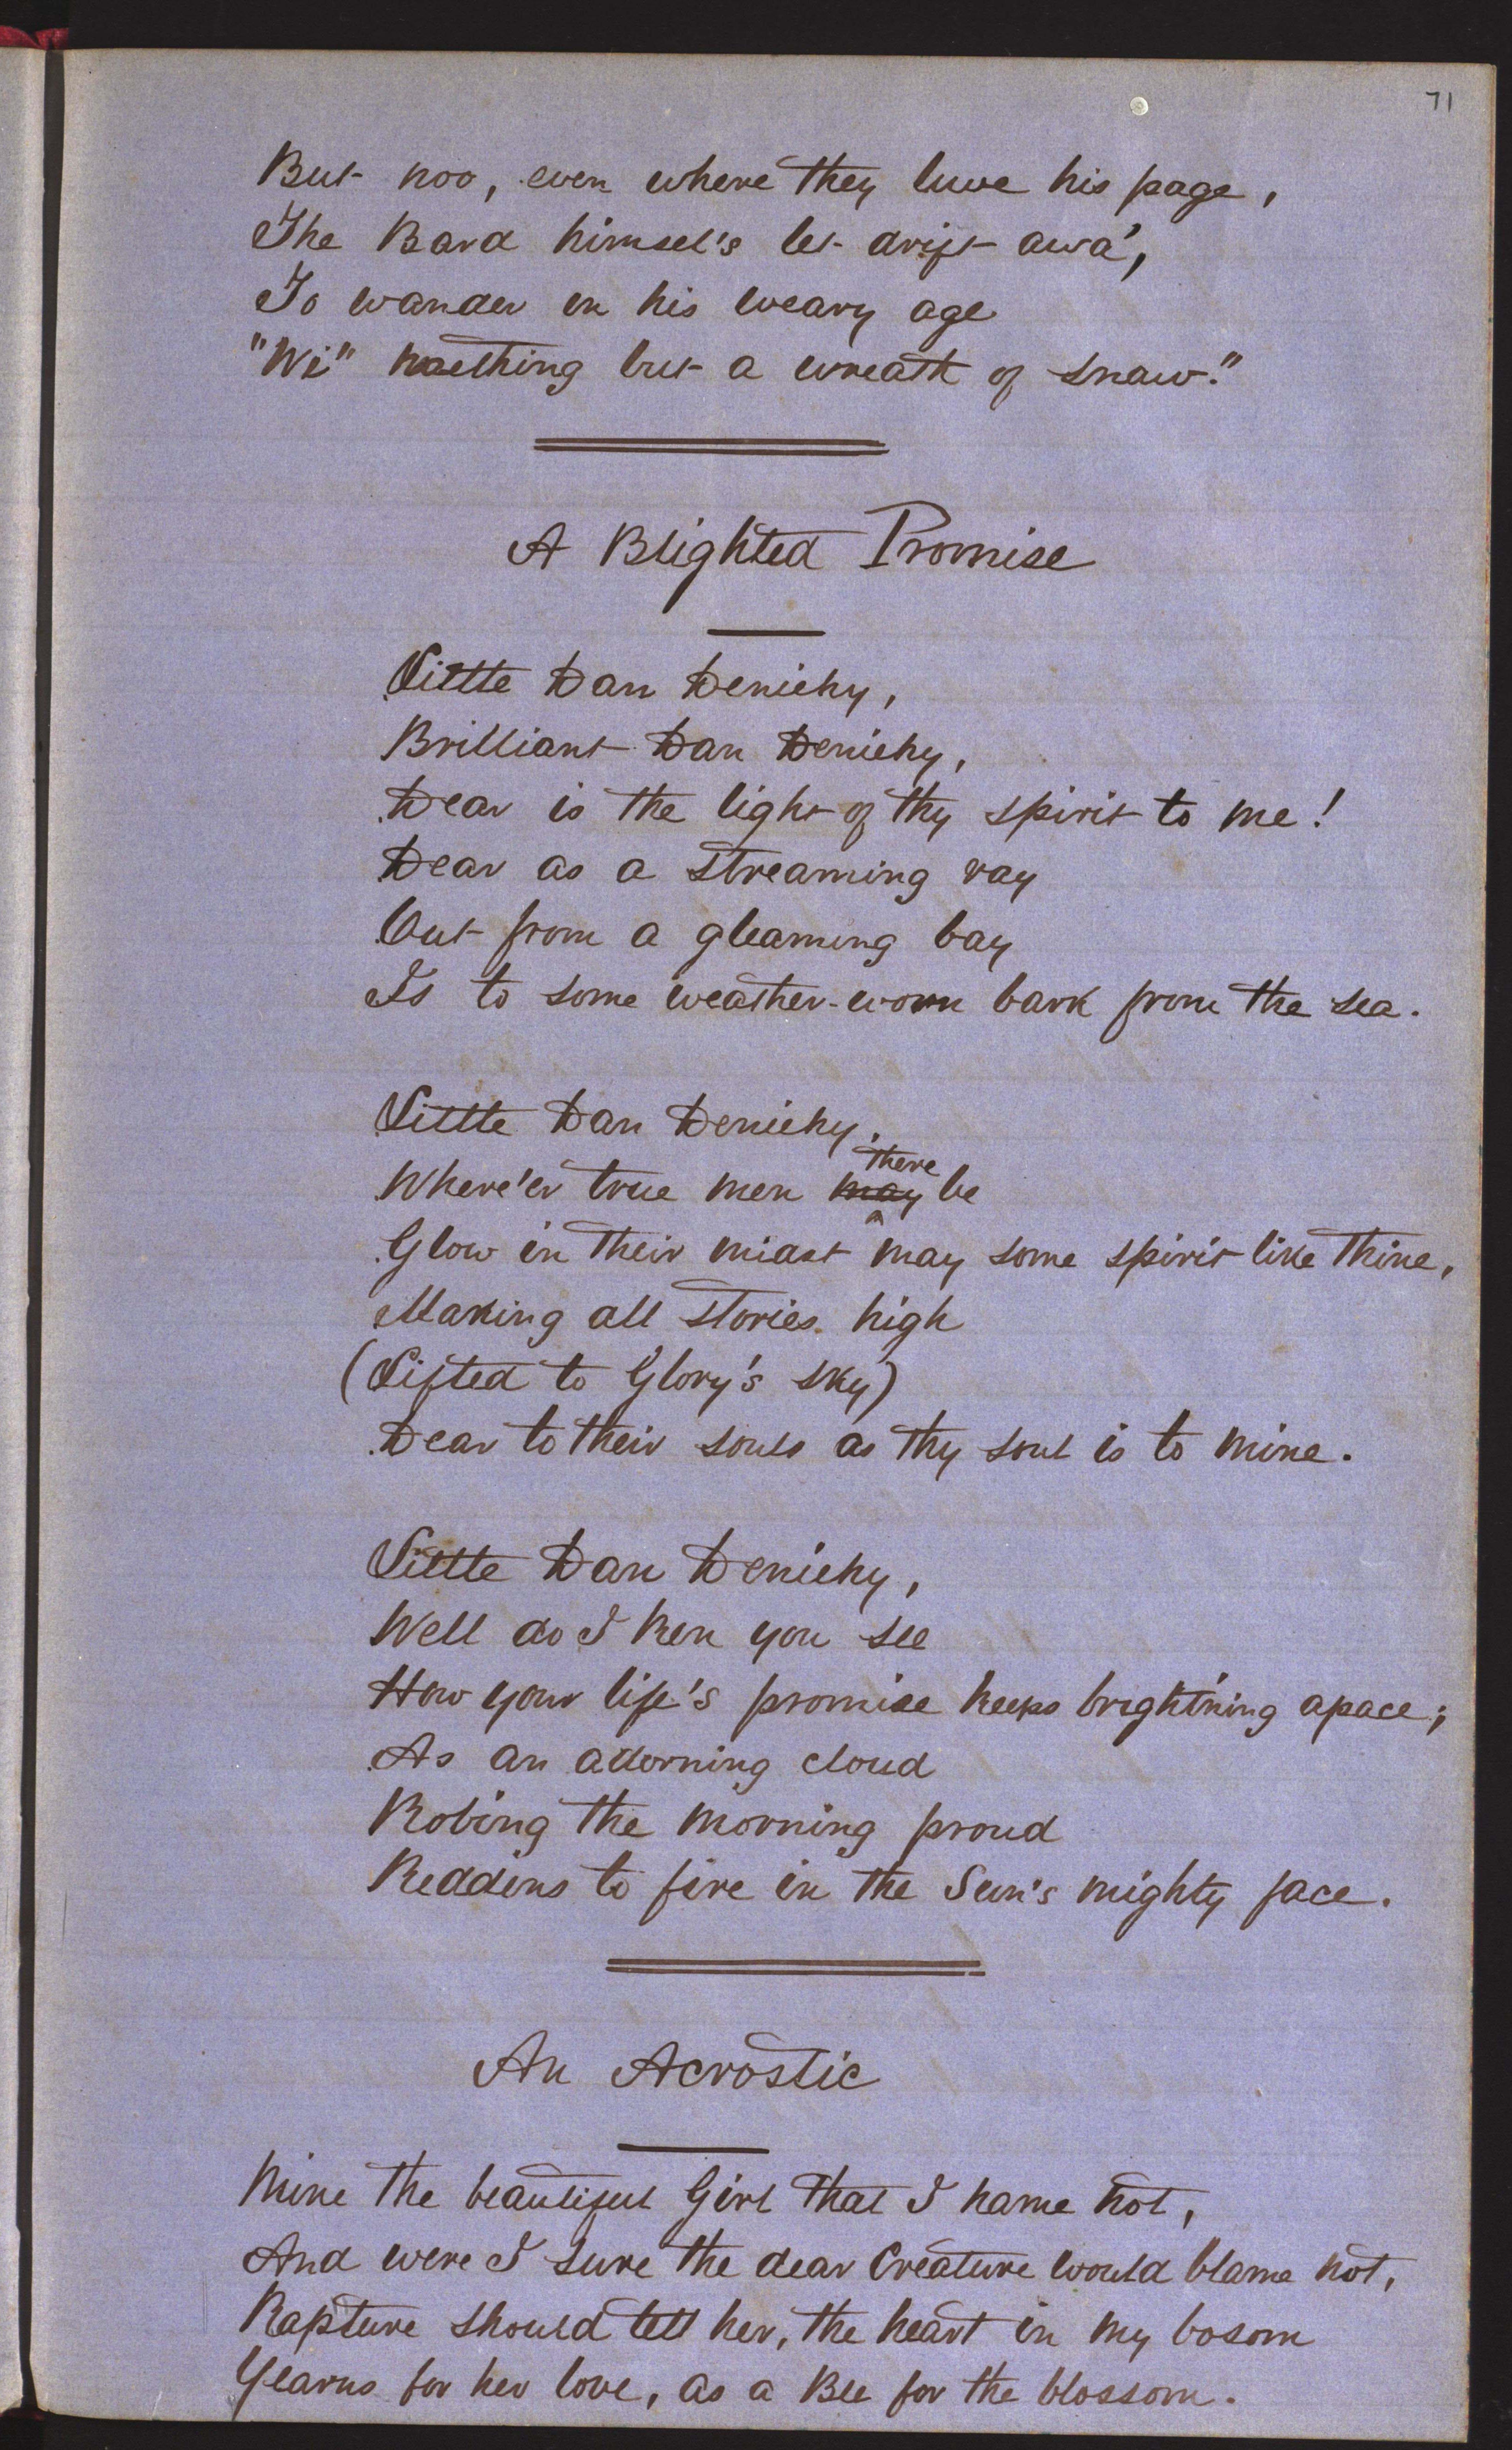 71
But noo, even where they luve his page,
The Bard himsel's let drift awa',
To wander in his weary age
"Wi" naething but a wreath of snaw."
A Blighted Promise
Little Dan Deniehy,
Brilliant Dan Deniehy,
Dear is the light of thy spirit to me!
Dear as a streaming ray
Out from a gleaming bay
Is to some weather-worn bark from the sea.
Little Dan Deniehy,
there
Where'er true men may be
Glow in their midst may some spirit like thine,
Making all stories high
(Lifted to Glory's sky)
Dear to their souls as thy soul is to mine.
Little Dan Deniehy,
Well do I ken you see
How your life's promise keeps bright'ning apace;
As an adorning cloud
Robing the morning proud
Reddens to fire in the Sun's mighty face.
An Acrostic
Mine the beautiful Girl that I name not,
And were I sure the dear Creature would blame not,
Rapture should tell her, the heart in my bosom
Yearns for her love, as a Bee for the blossom.